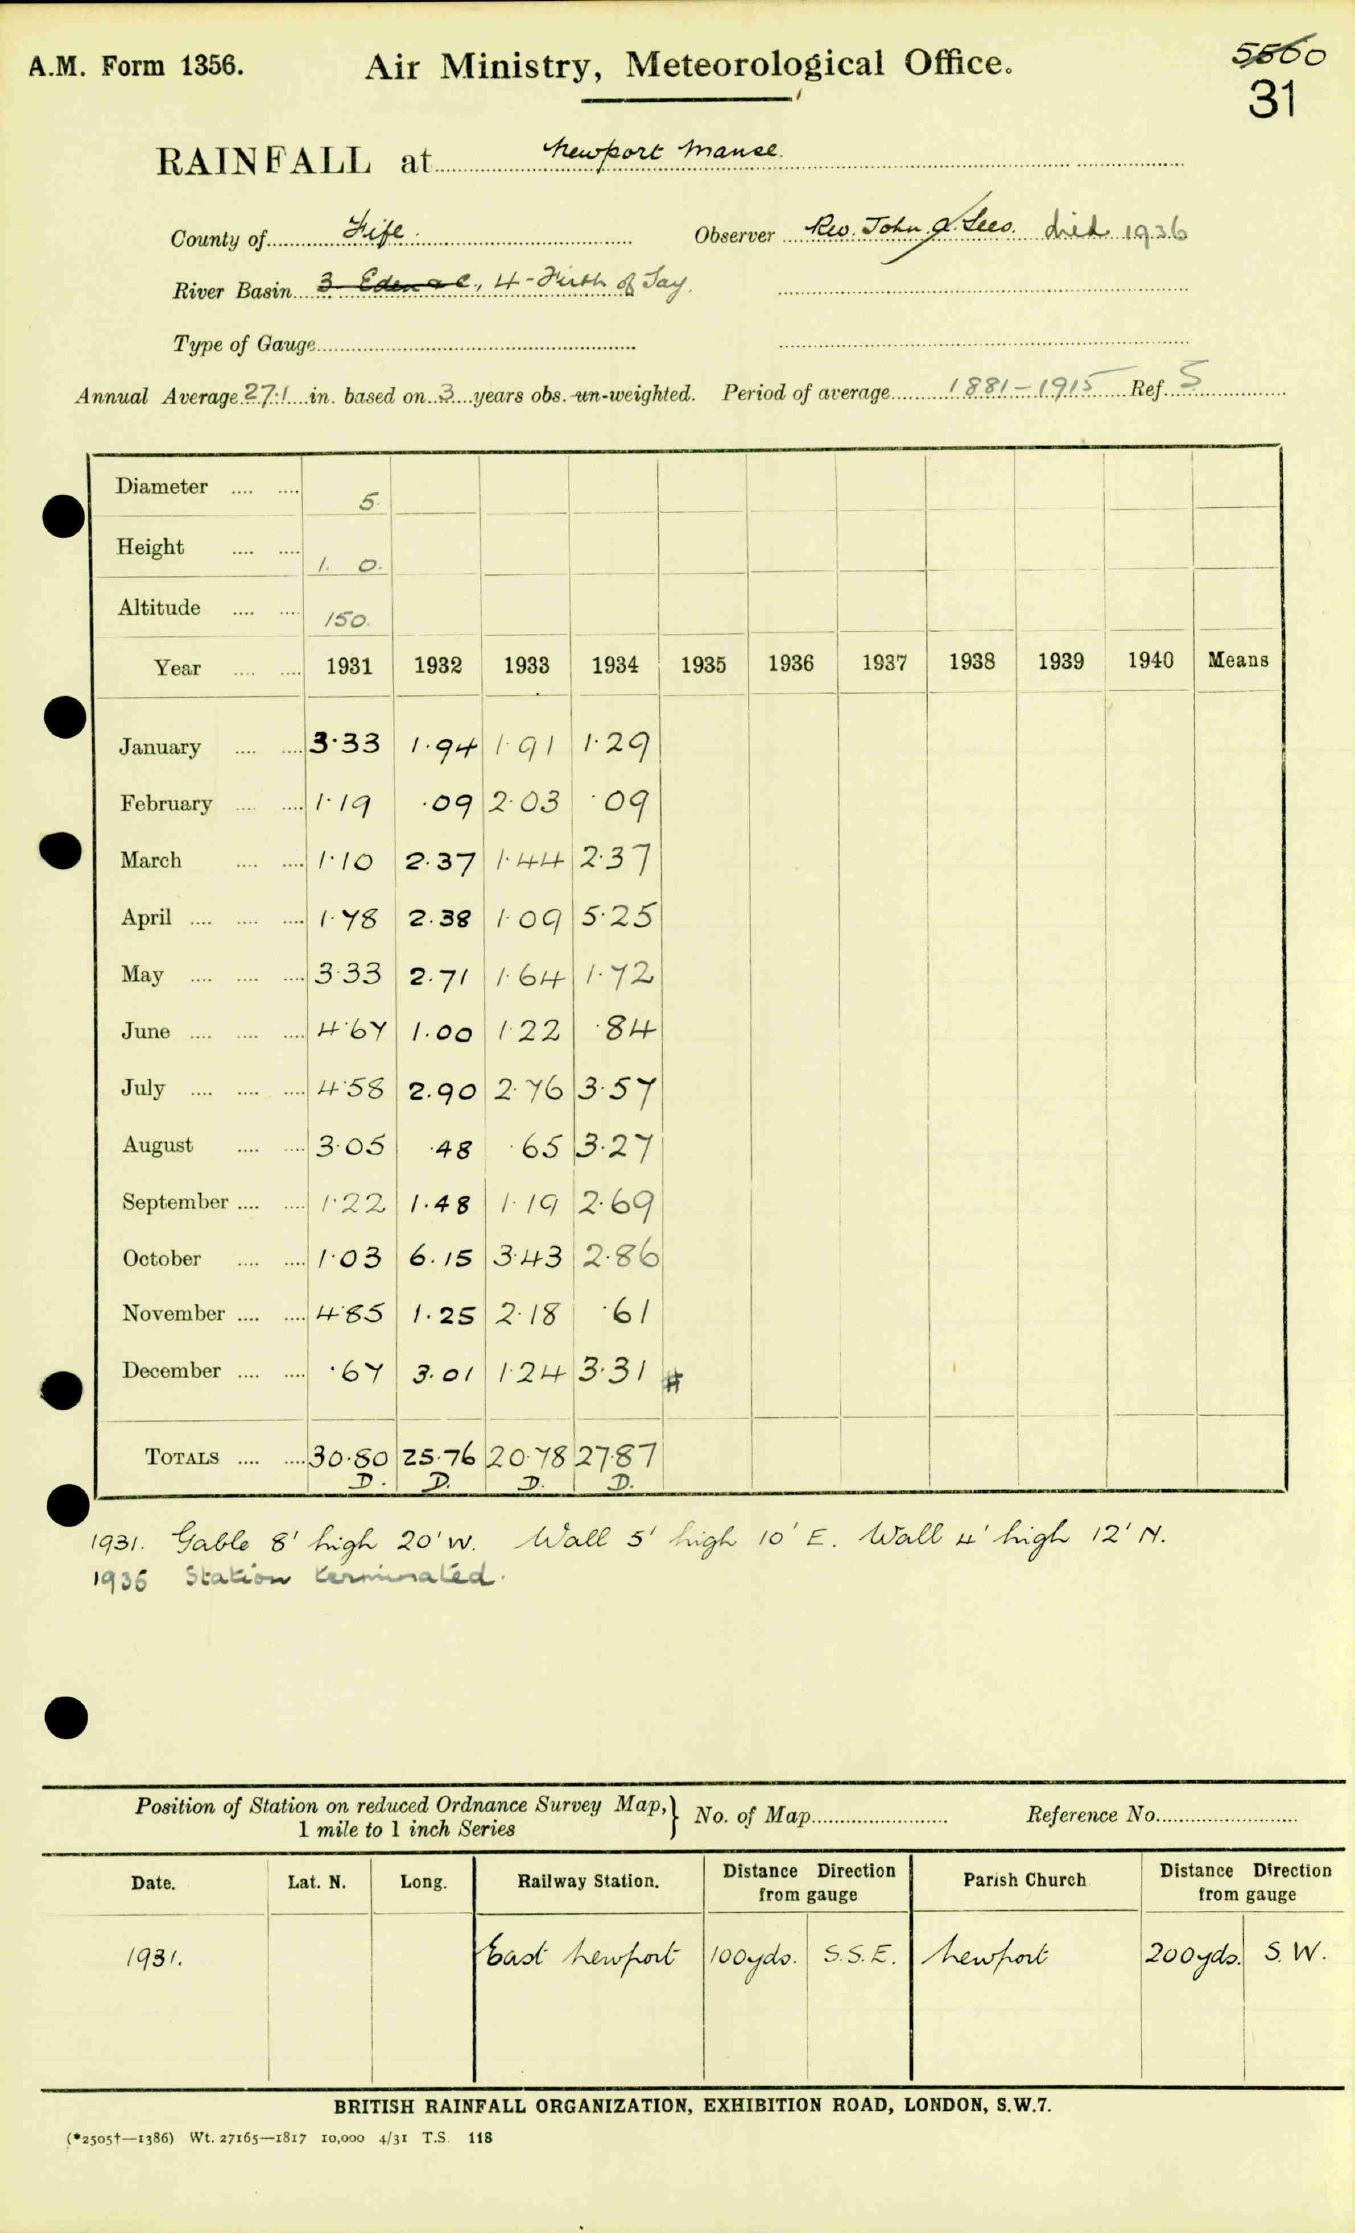 A.M. Form 1356. Air Ministry, Meteorological Office. 5560
31
RAINFALL at Newport Manse.
County of Fife. Observer Rev. John A. Lees. died 1936
River Basin 3 Eden &c., 4 - Firth of Tay.
Type of Gauge
Annual Average 27.1 in. based on 3 years obs. un-weighted. Period of average 1881-1915 Ref. S
Diameter .... .... 5.
Height .... .... 1. 0.
Altitude .... .... 150.
Year .... .... 1931 1932 1933 1934 1935 1936 1937 1938 1939 1940 Means
January .... .... 3.33 1.94 1.91 1.29
February .... .... 1.19 .09 2.03 .09
March .... .... 1.10 2.37 1.44 2.37
April .... .... .... 1.78 2.38 1.09 5.25
May .... .... .... 3.33 2.71 1.64 1.72
June .... .... .... 4.67 1.00 1.22 .84
July .... .... .... 4.58 2.90 2.76 3.57
August .... .... 3.05 .48 .65 3.27
September .... .... 1.22 1.48 1.19 2.69
October .... .... 1.03 6.15 3.43 2.86
November .... .... 4.85 1.25 2.18 .61
December .... .... .67 3.01 1.24 3.31 #
TOTALS .... .... 30.80 25.76 20.78 27.87
D. D. D. D.
1931. Gable 8' high 20' W. Wall 5' high 10' E. Wall 4' high 12' N.
1936 Station terminated.
Position of Station on reduced Ordnance Survey Map,} No. of Map Reference No.
1 mile to 1 inch Series
Date. Lat. N. Long. Railway Station. Distance Direction from gauge Parish Church Distance Direction from gauge
1931. East Newport 100yds. S.S.E. Newport 200yds. S.W.
BRITISH RAINFALL ORGANIZATION, EXHIBITION ROAD, LONDON, S.W.7.
(*2505†—1386) Wt. 27165—1817 10,000 4/31 T.S. 118